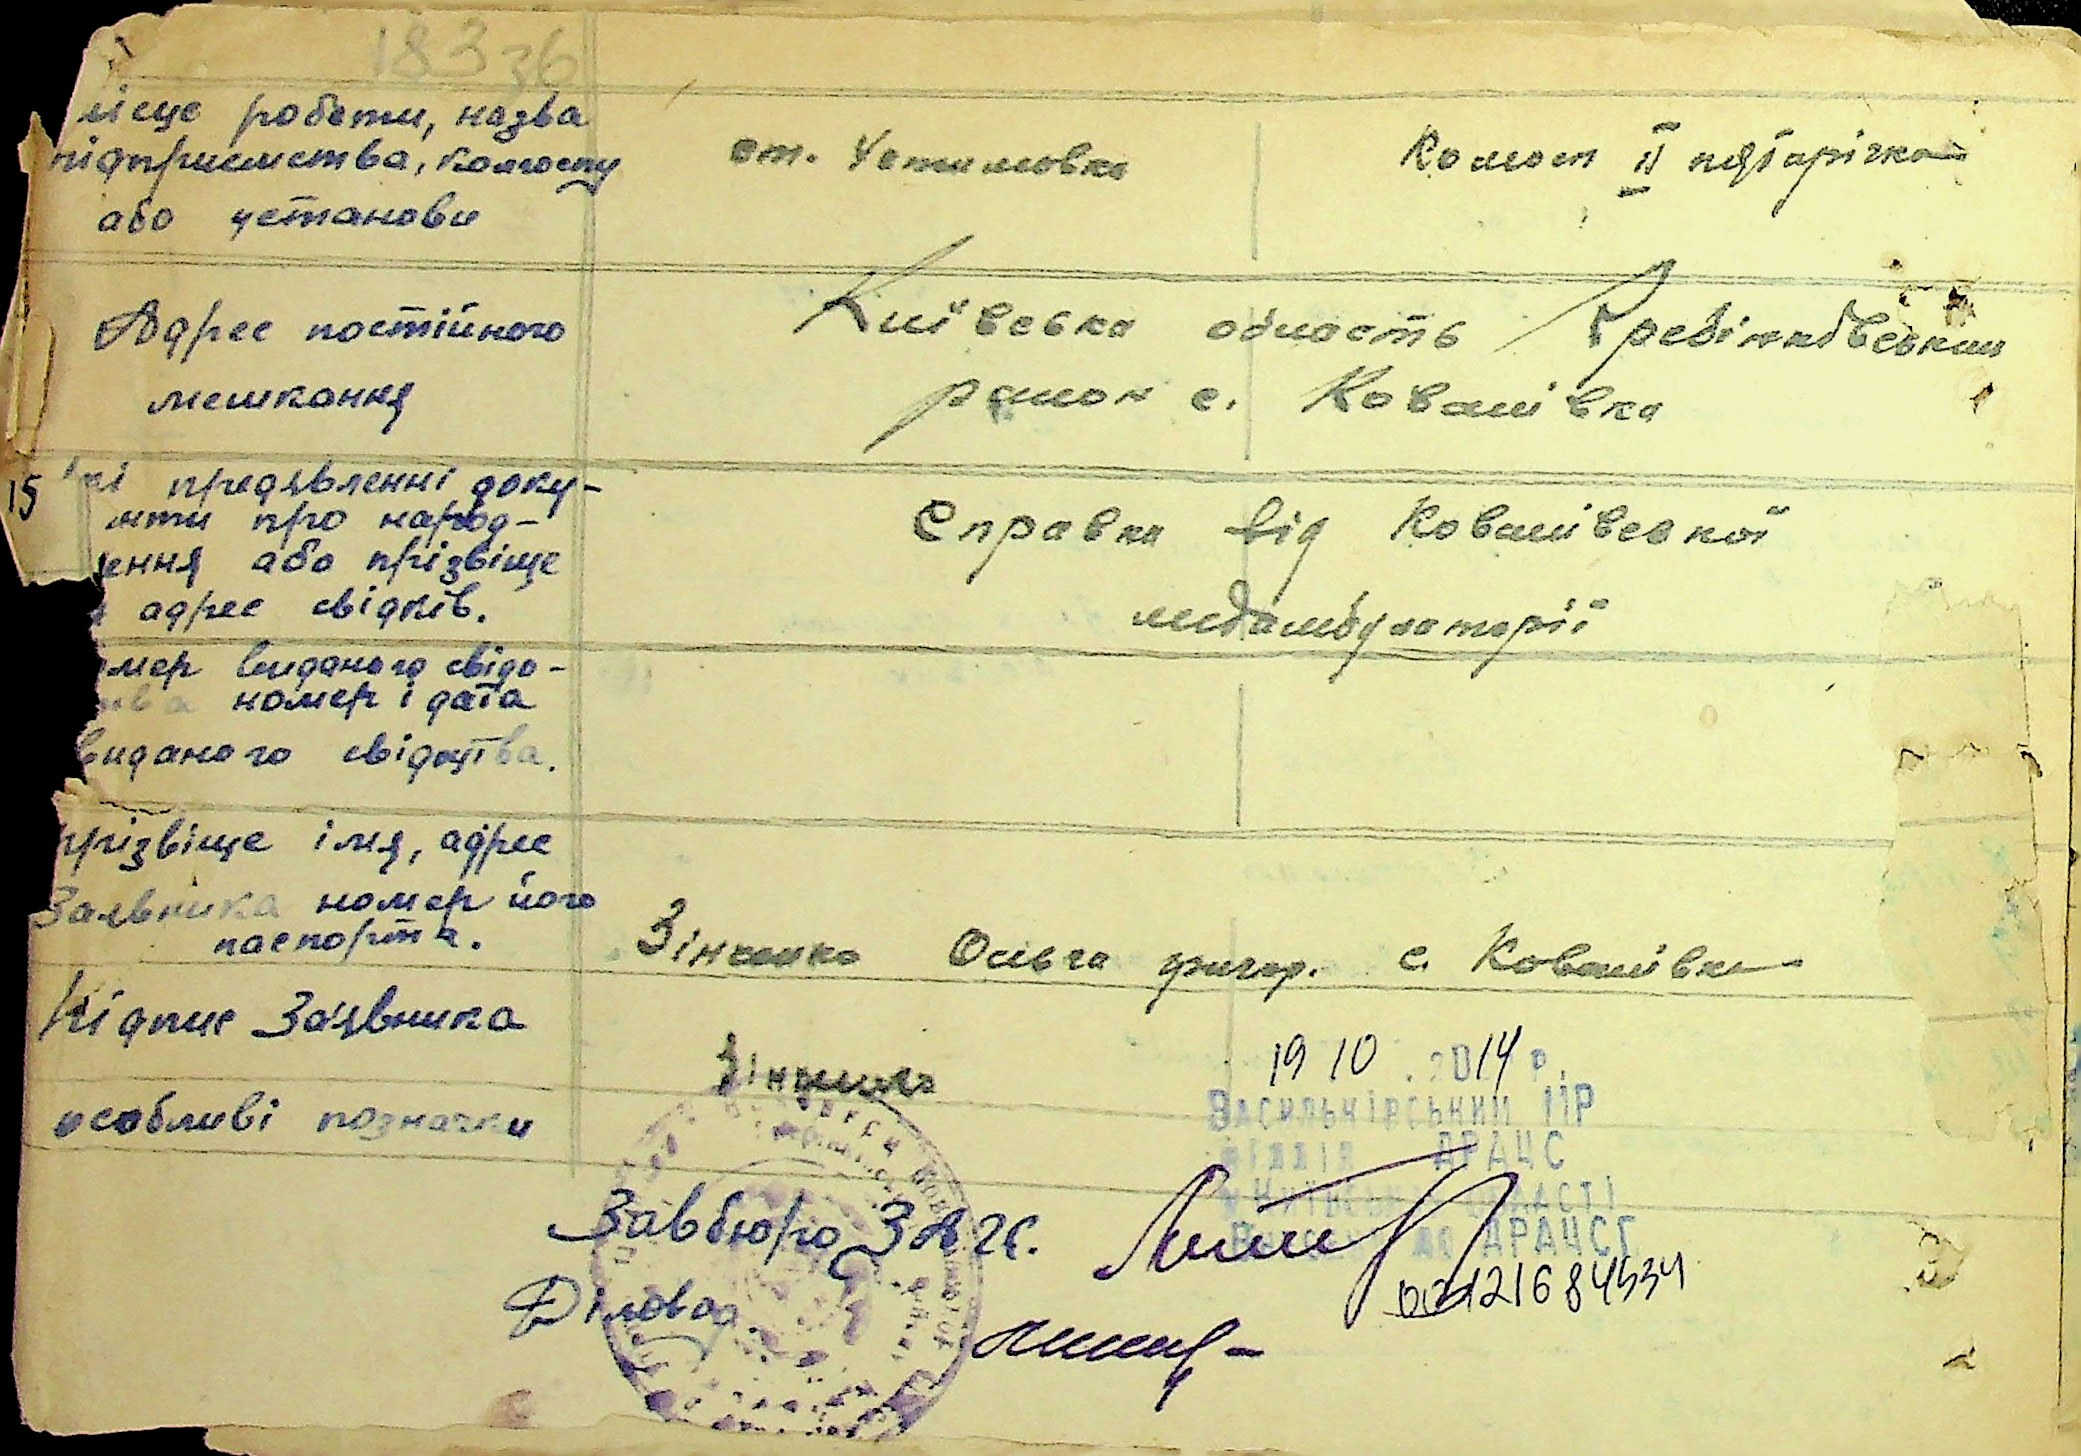 183 36
місце роботи, назва
підприємства, колгоспу
або установи
ст. Устимовка
Колгосп II п'ятирічка
Адрес постійного
мешкання
Київська область Гребінківський
район с. Ковалівка
15
які предявленні доку-
менти про народ-
ження або прізвіще
й адрес свідків.
Справка від Ковалівської
медамбулаторії
номер виданого свідо-
цтва номер і дата
виданого свідоцтва.
прізвіще імя, адрес
Заявника номер його
паспорта.
Зінченко Ольга григор. с. Ковалівка
Підпис Заявника
Зінченко
особливі позначки
19 10 .2014 р.
Васильківський МР
філія ДРАЦС
у Київській області
до ДРАЦСГ
00121684534
Завбюро ЗАГС.
Діловод